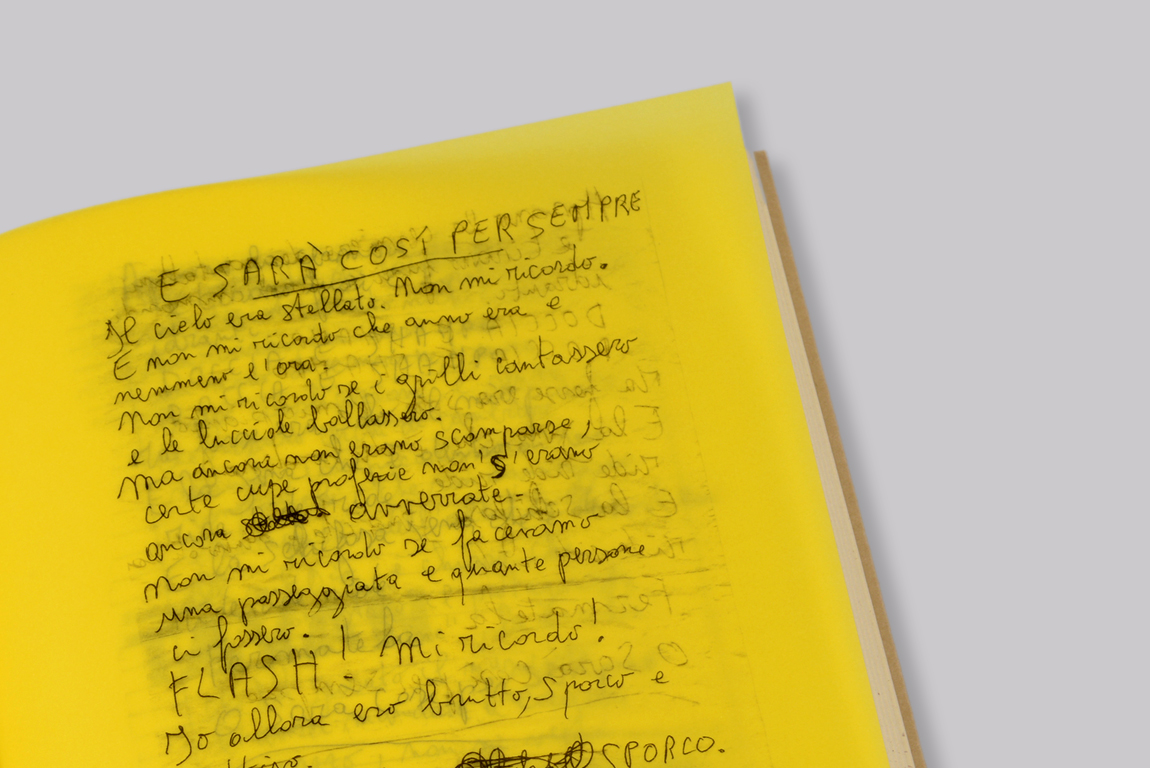 E SARÀ COSÍ PER SEMPRE
Il cielo era stellato. Non mi ricordo.
E non mi ricordo che anno era e
nemmeno l'ora.
Non mi ricordo se i grilli cantassero
e le lucciole ballassero.
Ma ancora non erano scomparse,
certe cupe profezie non s'erano
ancora avverrate.
Non mi ricordo se facevamo
una passeggiata e quante persone
ci fossero.
FLASH! Mi ricordo!
Io allora ero brutto, sporco e
SPORCO.